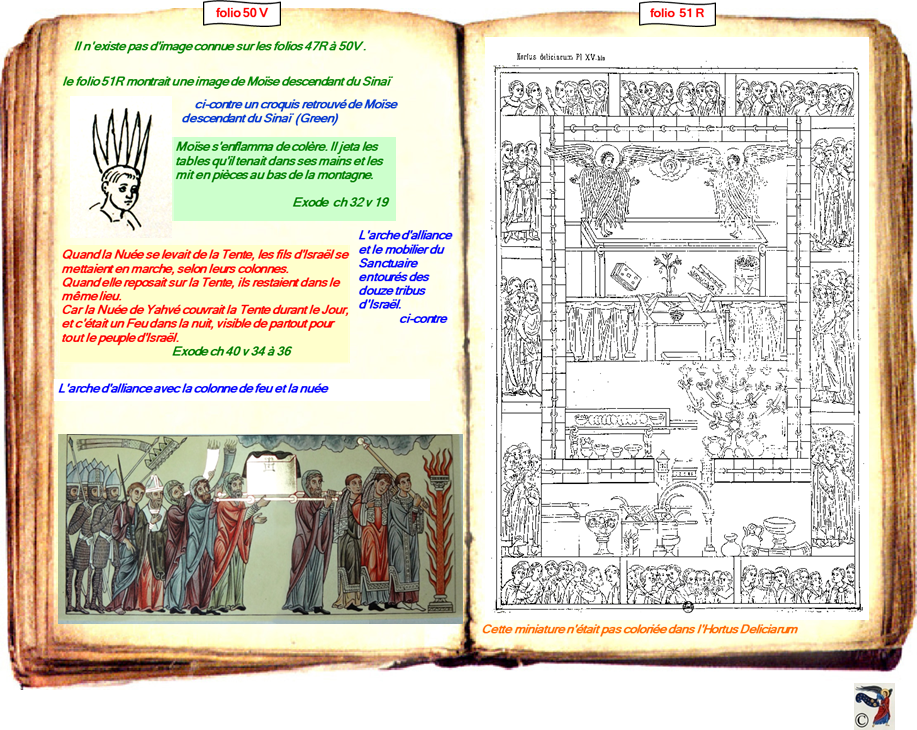 folio 50 V
Il n'existe pas d'image connue sur les folios 47R à 50V .
le folio 51R montrait une image de Moïse descendant du Sinaï
ci-contre un croquis retrouvé de Moïse
descendant du Sinaï (Green)
Moïse s'enflamma de colère. Il jeta les
tables qu'il tenait dans ses mains et les
mit en pièces au bas de la montagne.
Exode ch 32 v 19
Quand la Nuée se levait de la Tente, les fils d'Israël se
mettaient en marche, selon leurs colonnes.
Quand elle reposait sur la Tente, ils restaient dans le
même lieu.
Car la Nuée de Yahvé couvrait la Tente durant le Jour,
et c'était un Feu dans la nuit, visible de partout pour
tout le peuple d'Israël.
Exode ch 40 v 34 à 36
L'arche d'alliance
et le mobilier du
Sanctuaire
entourés des
douze tribus
d'Israël.
ci-contre
L'arche d'alliance avec la colonne de feu et la nuée
folio 51 R
Hortus deliciarum Pl XV.bis
Cette miniature n'était pas coloriée dans l'Hortus Deliciarum
©